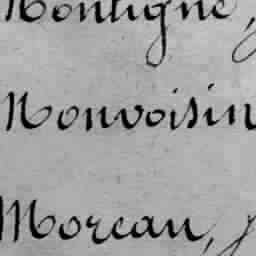 Montigne,
Monvoisin
Moreau,